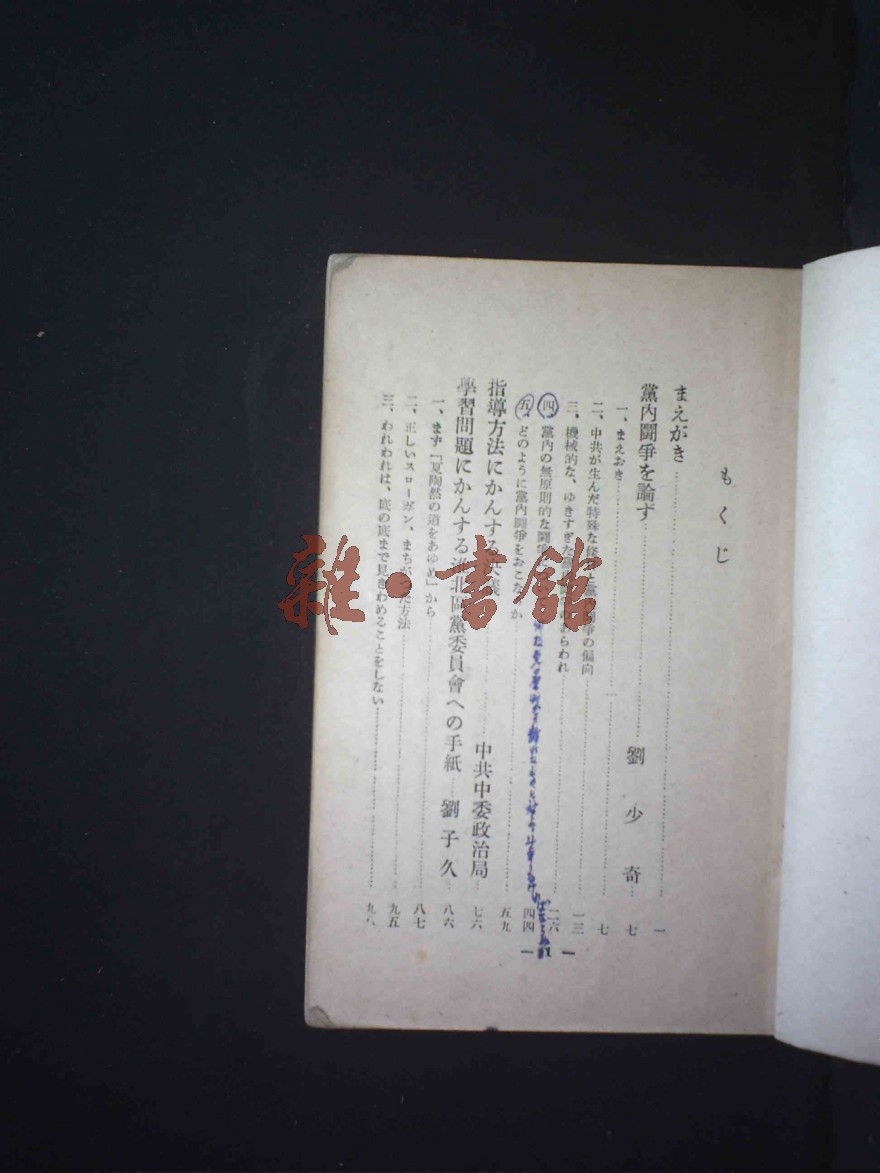 もくじ
まえがき……一
黨內闘爭を論ず……劉少奇……七
一、まえおき……七
二、中共が生んだ特殊な條と黨爭の偏向……一三
三、機械的な、ゆきすぎた らわれ……二六
四、黨內の無原則的な闘爭……四四
五、どのように黨內闘爭をおこな か……五九
指導方法にかんする 議……中共中委政治局……七六
學習問題にかんする 北區黨委員會への手紙……劉子久……八六
一、まず「夏陶然の道をあゆめ」から……八七
二、正しいスローガン、まち た方法……九五
三、われわれは、底の底まで見きわめることをしない……九八
— 1 —
雜·書館